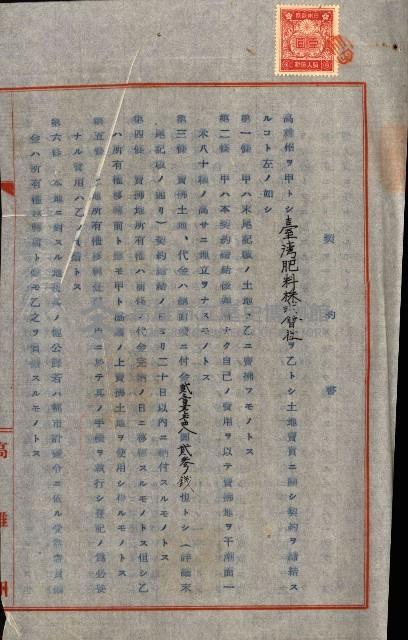 契約書
高雄州ヲ甲トシ臺湾肥料株式會社ヲ乙トシ土地賣買ニ關シ契約ヲ締結ス
ルコト左ノ如シ
第一條 甲ハ末尾記載ノ土地ヲ乙ニ賣拂フモノトス
第二條 甲ハ本契約締結後 ナク自己ノ費用ヲ以テ賣拂地ヲ干潮面一
米八十 ノ高サニ埋立ヲナスモノトス
第三條 賣拂土地ノ代金ハ ニ付金 貳参錢也トシ(詳細末
尾記載ノ通リ)契約締結ノ日ヨリ二十日以內ニ納付スルモノトス
第四條 賣拂地所有權ハ前條ノ代金完納ノ日ニ移轉スルモノトス但シ乙
ハ所有權移轉前ト雖モ甲ト協議ノ上賣拂土地ヲ使用シ得ルモノトス
第五條 土地所有權移轉 ニ於テ其ノ手續ヲ執行シ登記ノ爲必要
ナル費用ハ乙ノ負擔トス
第六條 本地ニ對スル地租其ノ他公課若ハ都市計畫令ニ依ル受益者負擔
金ハ所有權移轉前ト雖モ乙之ヲ負擔スルモノトス
高雄州